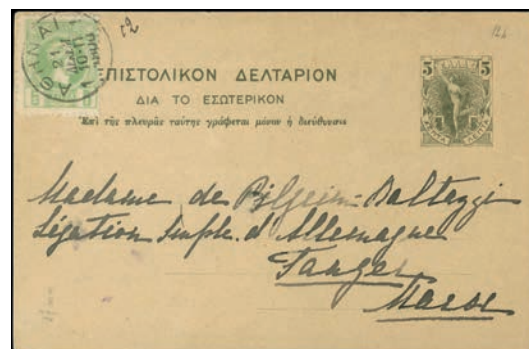 12
128
ΑΘΗΝΑΙ
1
21
10-11
ΕΠΙΣΤΟΛΙΚΟΝ ΔΕΛΤΑΡΙΟΝ
ΔΙΑ ΤΟ ΕΣΩΤΕΡΙΚΟΝ
Ἐπὶ τῆς πλευρᾶς ταύτης γράφεται μόνον ἡ διεύθυνσις
5 ΕΛΛΑΣ 5
ΛΕΠΤΑ
Madame de Pilgrim-Baltazzi
Légation Imple. d'Allemagne
Tanger
Maroc